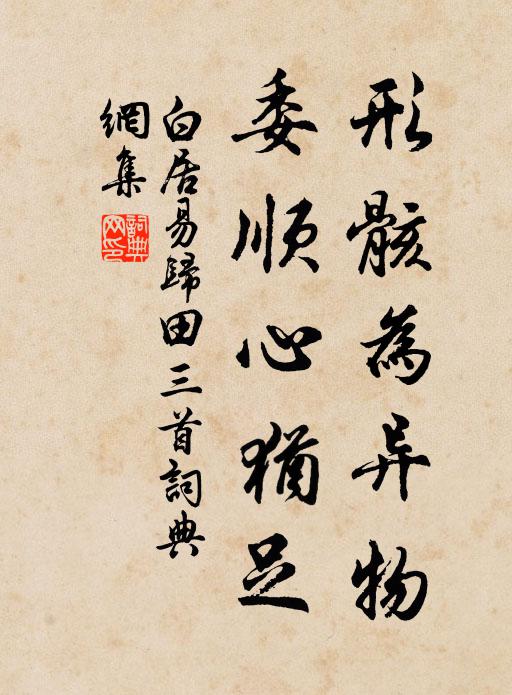 形骸為异物
委順心猶足
白居易歸田三首詞典
網集
詞典
网印